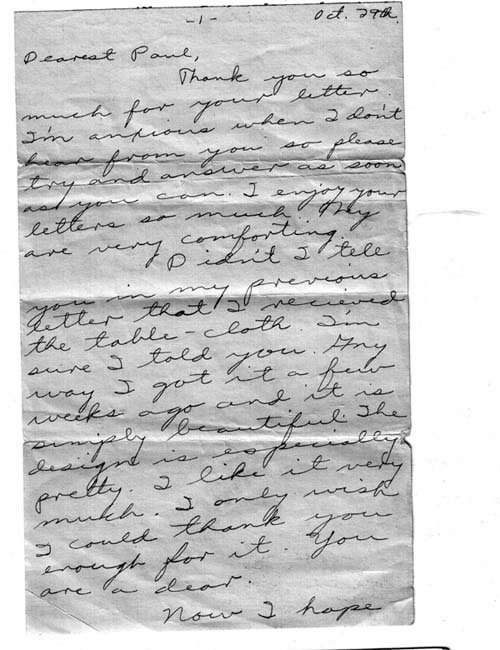 -1-
Oct. 29th.
Dearest Paul,
Thank you so
much for your letter.
I'm anxious when I don't
hear from you so please
try and answer as soon
as you can. I enjoy your
letters so much. They
are very comforting.
Didn't I tell
you in my previous
letter that I recieved
the table-cloth. I'm
sure I told you. Any
way I got it a few
weeks ago and it is
simply beautiful. The
design is especially
pretty. I like it very
much. I only wish
I could thank you
enough for it. You
are a dear.
Now I hope